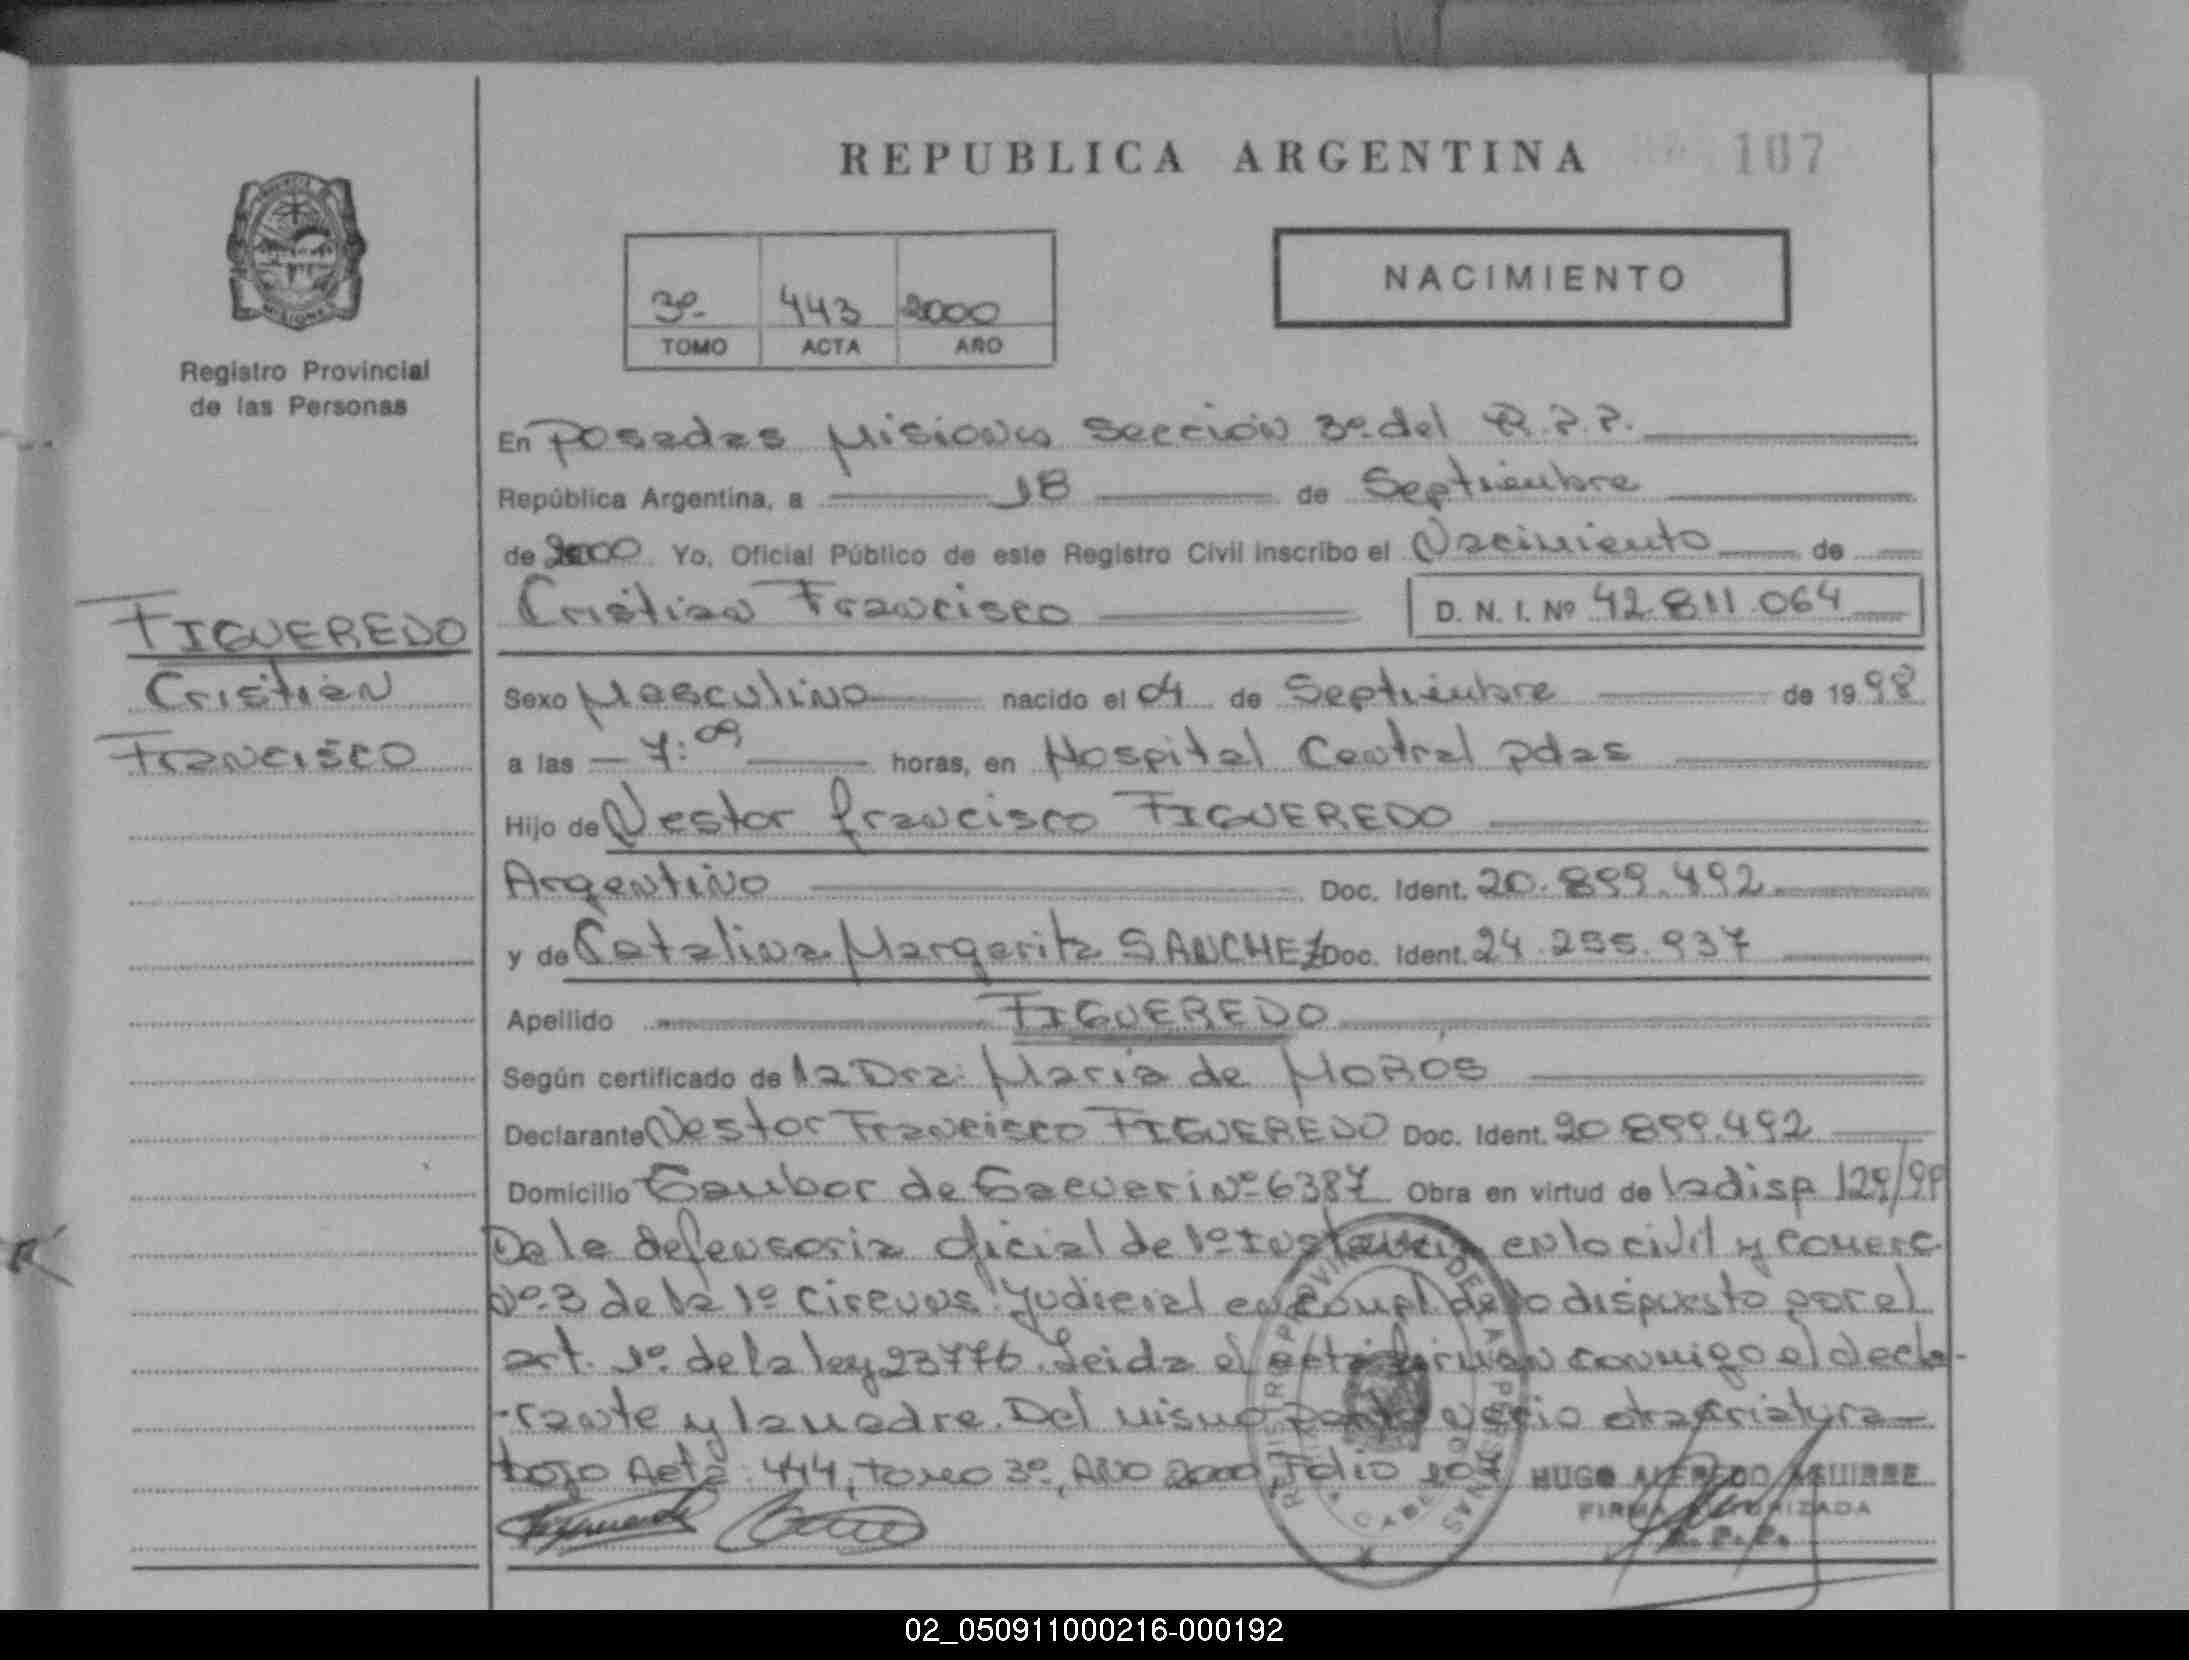 REPUBLICA ARGENTINA 107
NACIMIENTO
3º 443 2000
TOMO ACTA AÑO
Registro Provincial
de las Personas
En Posadas Misiones Sección 3º del R.P.P.
República Argentina, a 18 de Septiembre
de 2000 Yo, Oficial Público de este Registro Civil inscribo el Nacimiento de
Cristian Francisco D. N. I. Nº 42.811.064
FIGUEREDO
Cristian
Francisco
Sexo Masculino nacido el 04 de Septiembre de 1998
a las 7:09 horas, en Hospital Central pdas
Hijo de Nestor Francisco FIGUEREDO
Argentino Doc. Ident. 20.899.492
y de Catalina Margarita SANCHEZ Doc. Ident. 24.255.937
Apellido FIGUEREDO
Según certificado de la Dra: Maria de MOROS
Declarante Nestor Francisco FIGUEREDO Doc. Ident. 20.899.492
Domicilio de Nº 6387 Obra en virtud de la disp 129/99
De la defensoria oficial de 1º Instancia en lo civil y comerc.
Nº 3 de la 1º Circuns. Judicial en compl. de lo dispuesto por el
art. 1º de la ley 23776. Leida el acta firman conmigo el decla-
-rante y la madre. Del mismo parto nacio otra criatura
bajo Acta: 444, tomo 3º, Año 2000, Folio
HUGO ALFREDO AGUIRRE
FIRMA AUTORIZADA
R.P.P.
REGISTRO PROVINCIAL DE LAS PERSONAS
02_050911000216-000192